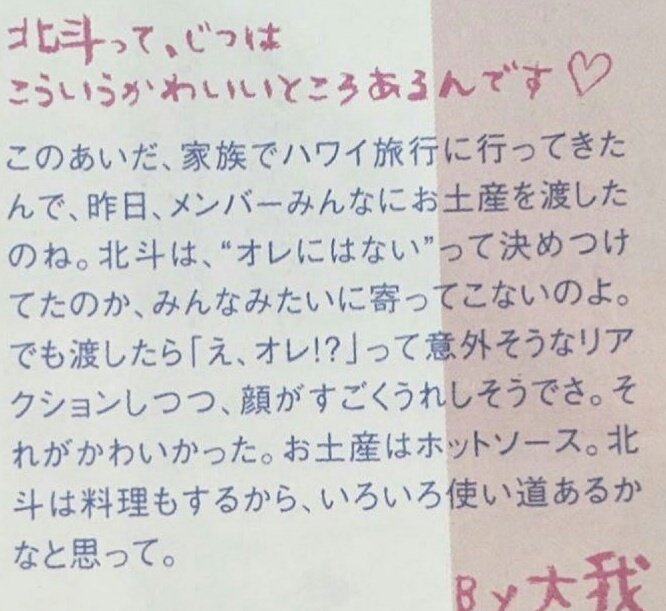 北斗って、じつは
こういうかわいいところあるんです♡
このあいだ、家族でハワイ旅行に行ってきた
んで、昨日、メンバーみんなにお土産を渡した
のね。北斗は、“オレにはない”って決めつけ
てたのか、みんなみたいに寄ってこないのよ。
でも渡したら「え、オレ!?」って意外そうなリア
クションしつつ、顔がすごくうれしそうでさ。そ
れがかわいかった。お土産はホットソース。北
斗は料理もするから、いろいろ使い道あるか
なと思って。
By大我